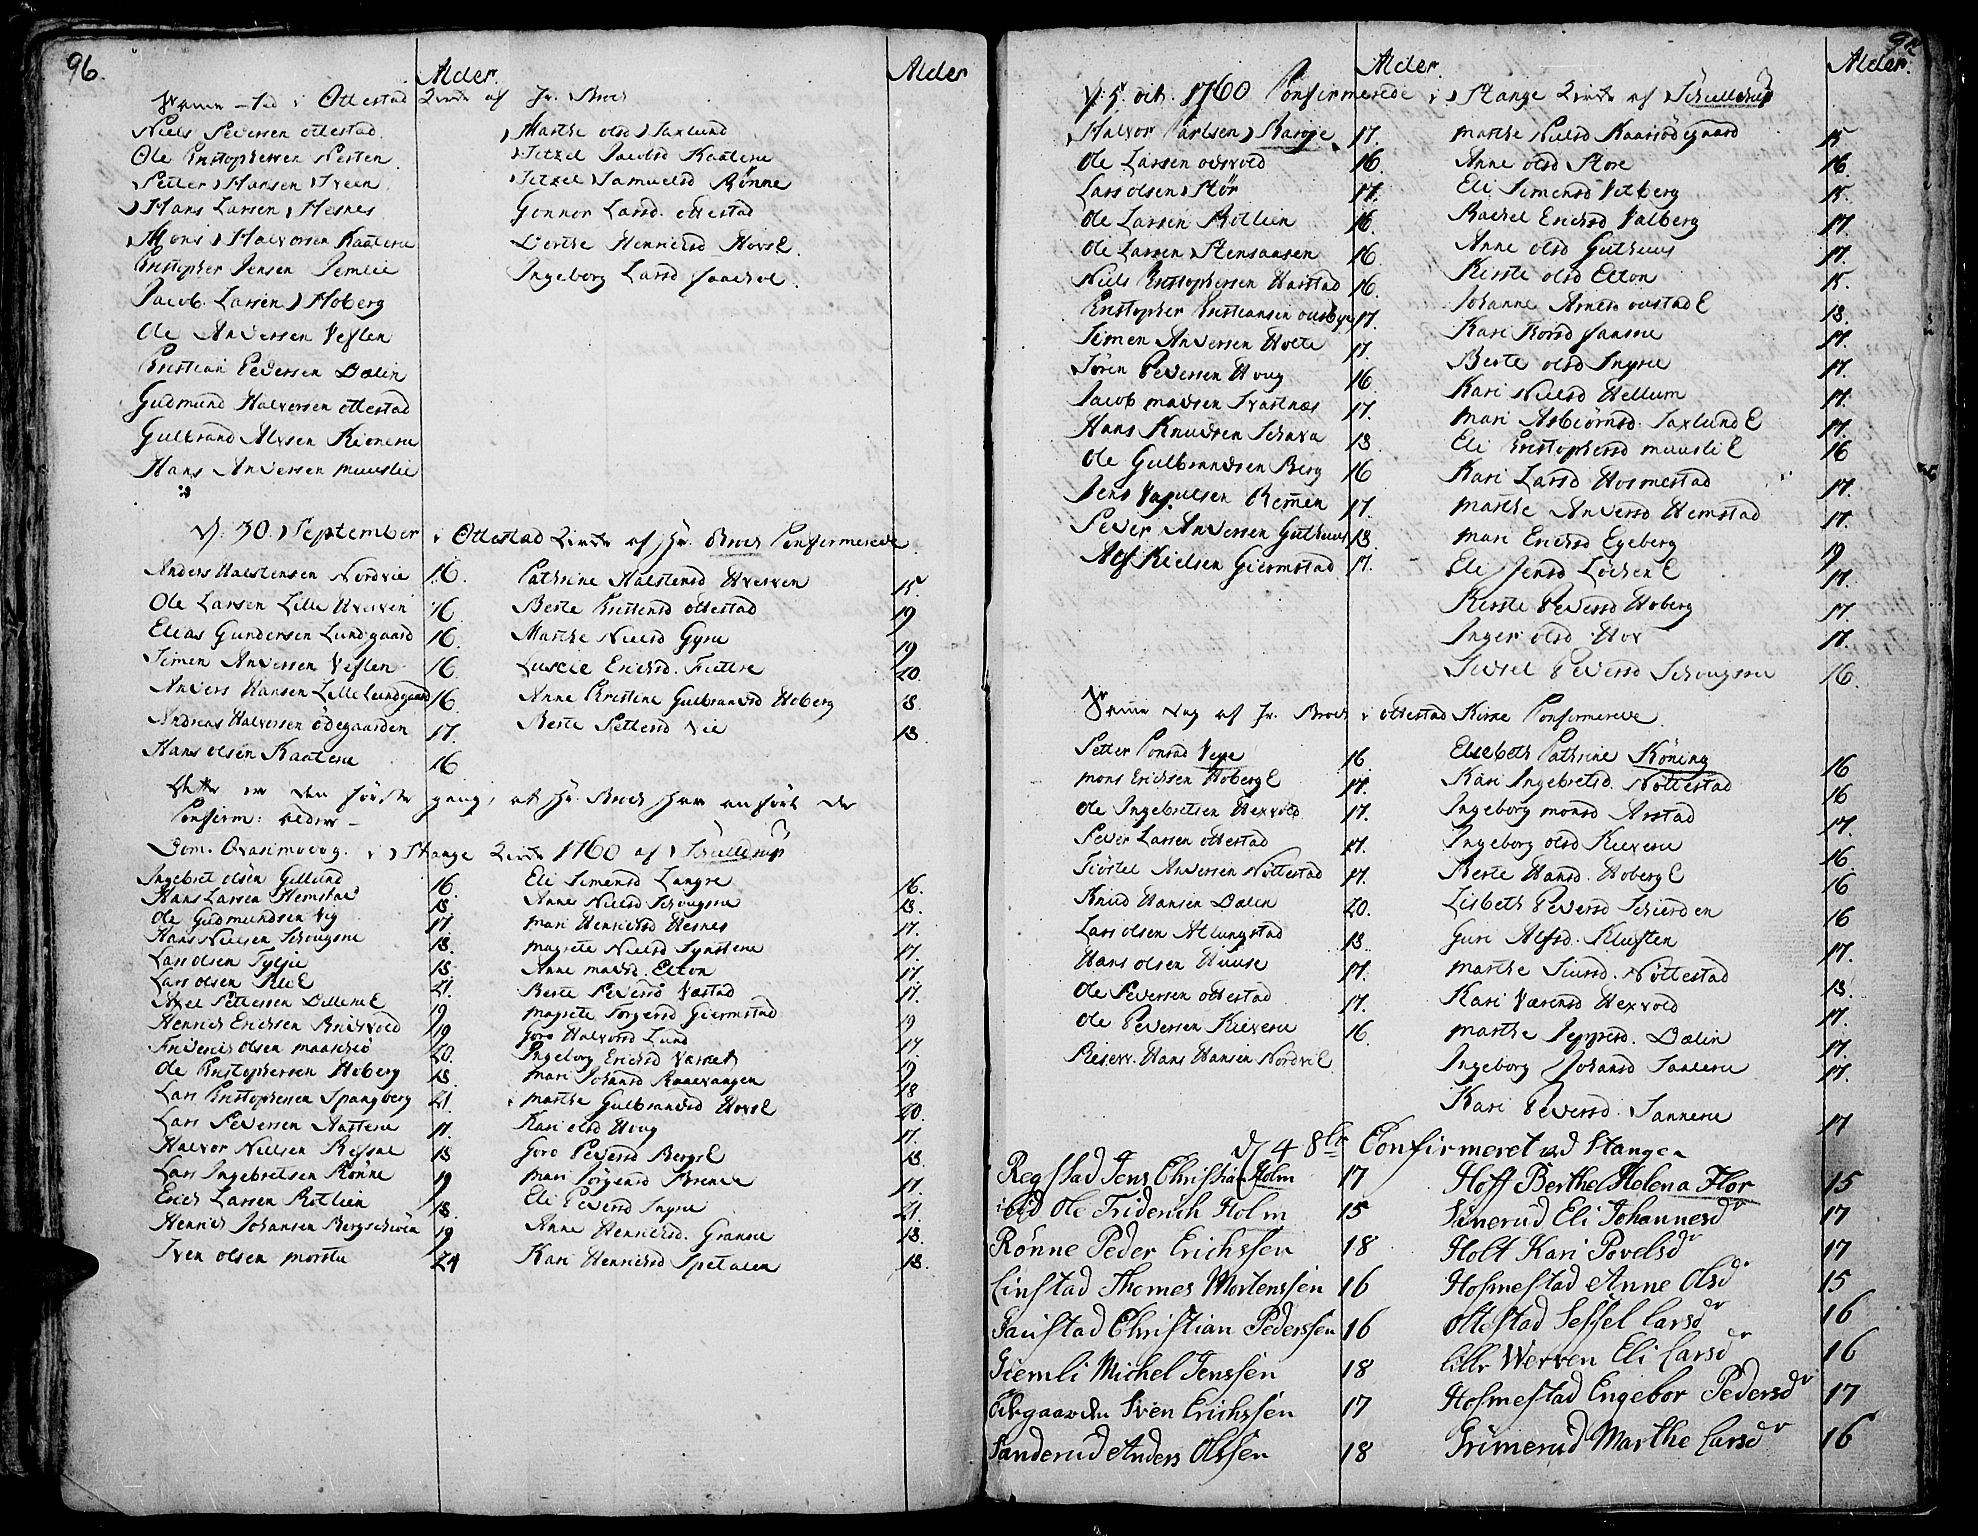 96.
Alder. Alder
Ottestad af Hr. Broch
Niels Pedersen Ottestad. Marthe olsd Saxlund
Ole Cristophersen Nesten Sitzel Jacobsd Kaatene
Petter Hansen Sitzel Samuelsd Rønne
Hans Larsen Hesnes Gonnor Larsd. ottestad
Mons Halvorsen Kaatene Dorthe Henrichsd Hovs E.
Cristopher Jensen Jemlie Ingeborg Larsd
Jacob Larsen Hoberg
Ole Andersen Veslen
Cristian Pedersen Dælin
Gudmund Halvorsen ottestad
Gulbrand Alvsen Kionerü
Hans Andersen muuslie
D. 30. September i Ottestad Kirke af Hr. Broch Confirmerede
Anders Halstensen Nordvie 16. Cathrine Halstensd Hverven 15.
Ole Larsen Lille Hverven 16. Berte Cristensd ottestad 19
Elias Gundersen Lundgaard 16. Marthe Nielsd Gyrü 19
Simen Andersen Veslen 16 Luscie Erichsd. 20.
Anders Hansen Lille Lundgaard 16. Anne Christine Gulbrandsd Hoberg 18.
Andreas Halvorsen Ödegaarden 17. Berte Pettersd Vie 18.
Hans olsen Kaatene 16
Dette er den første gang, at Hr. Broch har anført de
Confirm: alder –
Dom. Qvasimodog. i Stange Kirke 1760 af Schielderup
Ingebret olsen Gillund 16. Eli Simensd Langre 16.
Hans Larsen Hemstad 18. Anne Nielsd Schougrü 18.
Ole Gudmundsen Vig 17 mari Henrichsd Hesnes 17.
Hans Nielsen Schougrü 18. magrete Nielsd 17.
Lars olsen 18 Anne madsd. Elton 17.
Lars olsen 21. Berte Pedersd Væstad 17.
Axel Pettersen Dillerü E 19 magrete Torgersd Giermstad 19
Henrich Erichsen 19 Goro Halvorsd Lund 17.
Friderich olsen 20. Ingeborg Erichsd 19
Ole Cristophersen Hoberg 18. mari Johansd Raaevangen 18
Lars Cristophersen Spangberg 21. marthe Gulbrandsd Hovs E 20.
Lars Pedersen Aastene 17. Kari olsd Houg 17.
Halvor Nielsen 18 Goro Pedersd Bergs E 18.
Lars Ingebretsen Rønne 19 mari Jörgensd 17.
Erich Larsen Rotlien 18. Eli Pedersd 21.
Henrich Johansen 19 Anne Henrichsd. 18.
Iven olsen morstu 24 Kari Henrichsd Spetalen 18.
Alder. Alder.
D. 5. oct. 1760 Confirmerede i Stange Kirke af Schielderup
Halvor Carlsen 17. marthe Nielsd Kaarsödegaard 15
Ole Larsen 16. Anne olsd Stor 16.
Lars olsen Stör 17. Eli Simensd Vetberg 15.
Ole Larsen Rotlien 16. Rachel Erichsd Valberg 17.
Ole Larsen Stensaasen 16 Anne olsd Guthuus 17.
Niels Cristophersen Harstad 16. Kirste olsd Elton 15.
Cristopher Cristiansen ousbye 17. Johanne Arnesd oustad E 18
Simen Andersen Holte 17. Kari 17.
Sören Pedersen Houg 16 Berte olsd 17.
Jacob madsen 17. Kari Nielsd Hellum 17.
Hans Knudsen 18 mari Asbiörnsd. Saxlund E 17.
Ole Gulbrandsen Berg 16 Eli Cristophersd muuslie E 16
Jens Remen 17. Kari Larsd Hormestad 17.
Peder Andersen Guthuus 18. marthe Andersd Hemstad 17.
Alf Kielsen Giermstad 17. mari Erichsd Egeberg 19
Eli Jensd Löchen E 17.
Kirste Pedersd Hoberg 17.
Inger olsd Hov 17.
Sidsel Pedersd Schougrü 16.
Samme Dag af Hr. Broch i ottestad Kirke Confirmerede.
Petter Conrad 16. Elsebeth Cathrine Köning 16
mons Erichsen Hoberg E 17. Kari Ingebretsd. Nöttestad 16
Ole Ingebretsen Hexvold 17. Ingeborg monsd Arstad 17.
Peder Larsen ottestad 17. Ingeborg olsd Kieverü 16
Andersen Nöttestad 17. Berte Hansd. Hoberg E 16
Knud Hansen Dælin 20. Lisbeth Pedersd Schierden 16
Lars olsen Alungstad 18. Guri Alfsd. 17.
Hans olsen Huuse 17. marthe Siursd. Nöttestad 18.
Ole Pedersen ottestad 17. Kari Værensd Hexvold 17.
Ole Pedersen Kieverü 16 marthe Jeppesd. Dælin 17.
Reserv. Hans Hansen Nordvi E Ingeborg Johansd Sanderü 17.
Kari Pedersd. Sannerü 17
d 4 8br Confirmeret ved Stange
Regstad Jens Christian Holm 17 Hoff Berthe Helena Flor 15
ibid Ole Friderich Holm 15 Simerud Eli Johannesdr 17
Rönne Peder Erichssen 18 Holt Kari Povelsdr 17
Linstad Thomes Mortenssen 16 Hosmestad Anne Olsdr 15
Gaustad Christian Pederssen 16 Ottestad Sessel Larsdr 16
Giemli Michel Jenssen 18 Lille Werven Eli Larsdr 16
Ödegaarden Sven Erichssen 17 Hosmestad Engebor Pedersdr 17
Sanderud Anders Olssen 18 Grimerud Marthe Larsdr 16